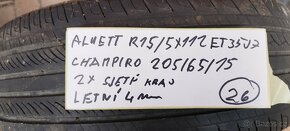 ALUETT R15/5X112 ET35J7
CHAMPIRO 205/65/15
2X SJETÝ KRAJ
LETNÍ 4mm
26